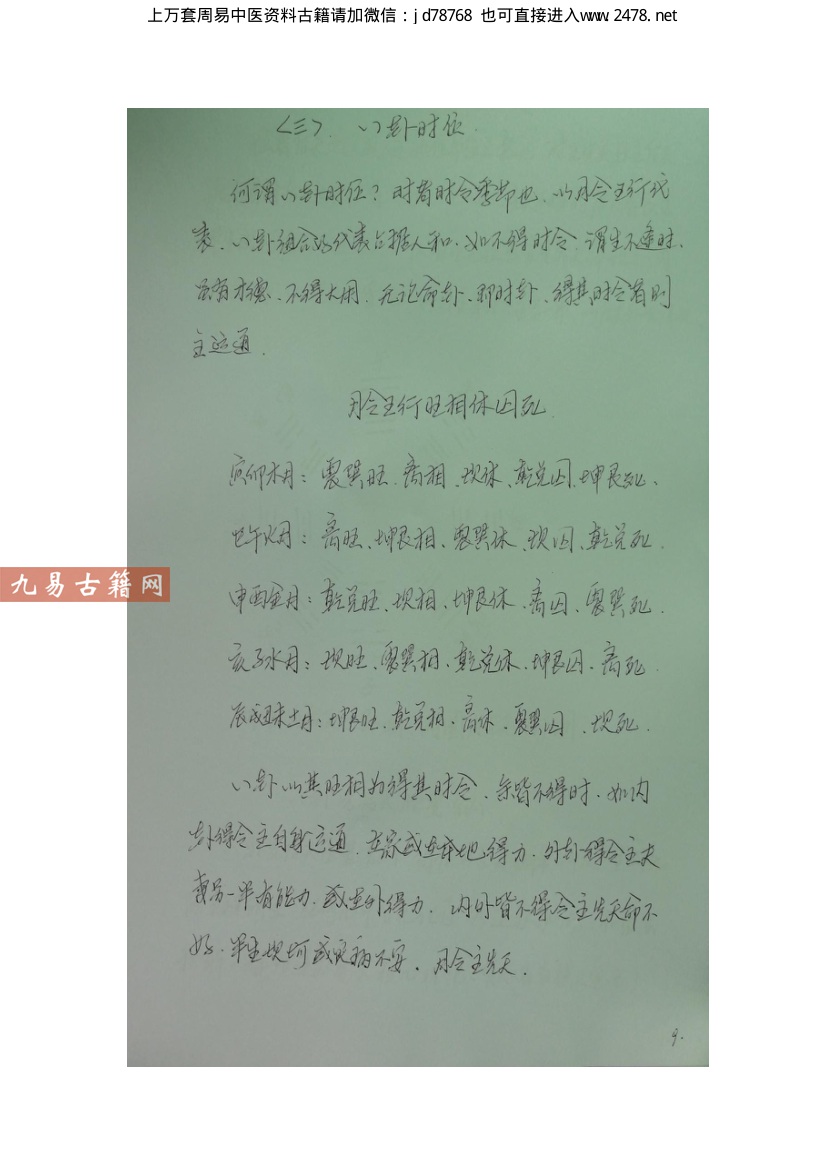 上万套周易中医资料古籍请加微信：jd78768 也可直接进入www.2478.net
<三>. 八卦时位.
何谓八卦时位？时者时令季节也. 以月令五行代
表. 八卦组合好代表占据人和. 如不得时令. 谓生不逢时.
虽有才德. 不得大用. 无论命卦. 那时卦、得其时令者则
主运通.
月令五行旺相休囚死.
寅卯木月：震巽旺. 离相、坎休、乾兑囚. 坤艮死、
巳午火月：离旺、坤艮相、震巽休、坎囚、乾兑死.
九易古籍网
申酉金月：乾兑旺、坎相、坤艮休、离囚、震巽死.
亥子水月：坎旺、震巽相、乾兑休. 坤艮囚. 离死.
辰戌丑未土月：坤艮旺、乾兑相、离休. 震巽囚、坎死.
八卦以其旺相为得其时令. 余皆不得时. 如内
卦得令主自身运通. 在家或在本地得力. 外卦得令主夫
妻另一半有能力. 或在外得力. 内外皆不得令主先天命不
好. 半生坎坷或灾病不安. 月令主先天.
9.